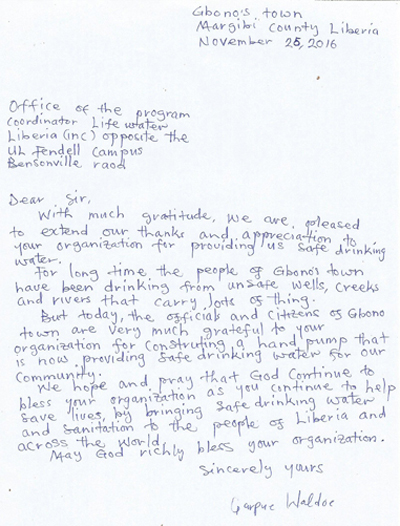 Gbono's town
Margibi County Liberia
November 25, 2016
Office of the program
Coordinator Life water
Liberia (inc) opposite the
UL Fendell Campus
Bensonville raod
Dear Sir,
With much gratitude, we are pleased
to extend our thanks and appreciation to
your organization for providing us safe drinking
water.
For long time the people of Gbono's town
have been drinking from unsafe wells, creeks
and rivers that carry lots of thing.
But today, the officials and citizens of Gbono
town are very much grateful to your
organization for construting a hand pump that
is now providing safe drinking water for our
Community.
We hope and pray that God Continue to
bless your organization as you continue to help
save lives, by bringing safe drinking water
and sanitation to the people of Liberia and
across the world.
May God richly bless your organization.
Sincerely yours
Waldoe